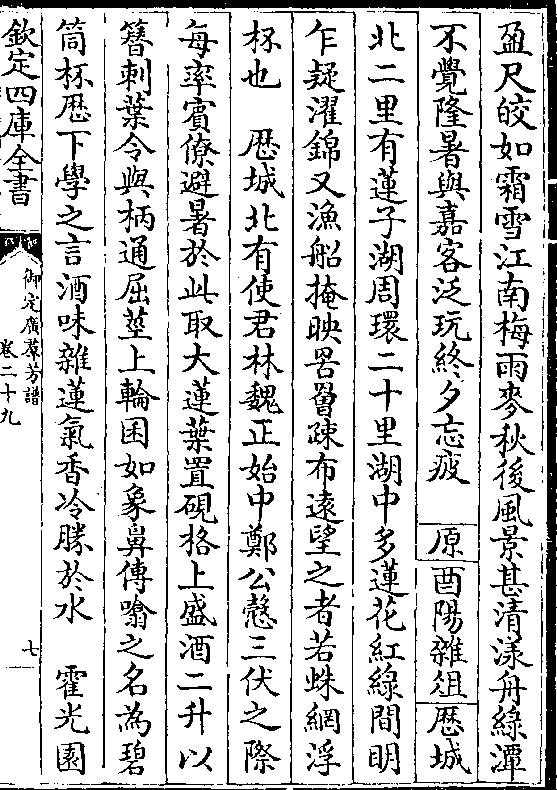 盈尺皎如霜雪江南梅雨麥秋後風景甚清漾舟綠潭
不覺隆暑與嘉客泛玩終夕忘疲　原　酉陽雜俎　歴城
北二里有蓮子湖周環二十里湖中多蓮花紅綠間明
乍疑濯錦又漁船掩映罟罾疎布遠望之者若蛛網浮
杯也　歴城北有使君林魏正始中鄭公慤三伏之際
每率賓僚避暑於此取大蓮葉置硯格上盛酒二升以
簪刺葉令與柄通屈莖上輪囷如象鼻傳噏之名為碧
筒杯歴下學之言酒味雜蓮氣香冷勝於水　霍光園
欽定四庫全書
御定廣羣芳譜
卷二十九
七